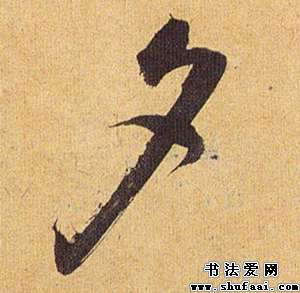 夕
书法爱网
www.shufaai.com